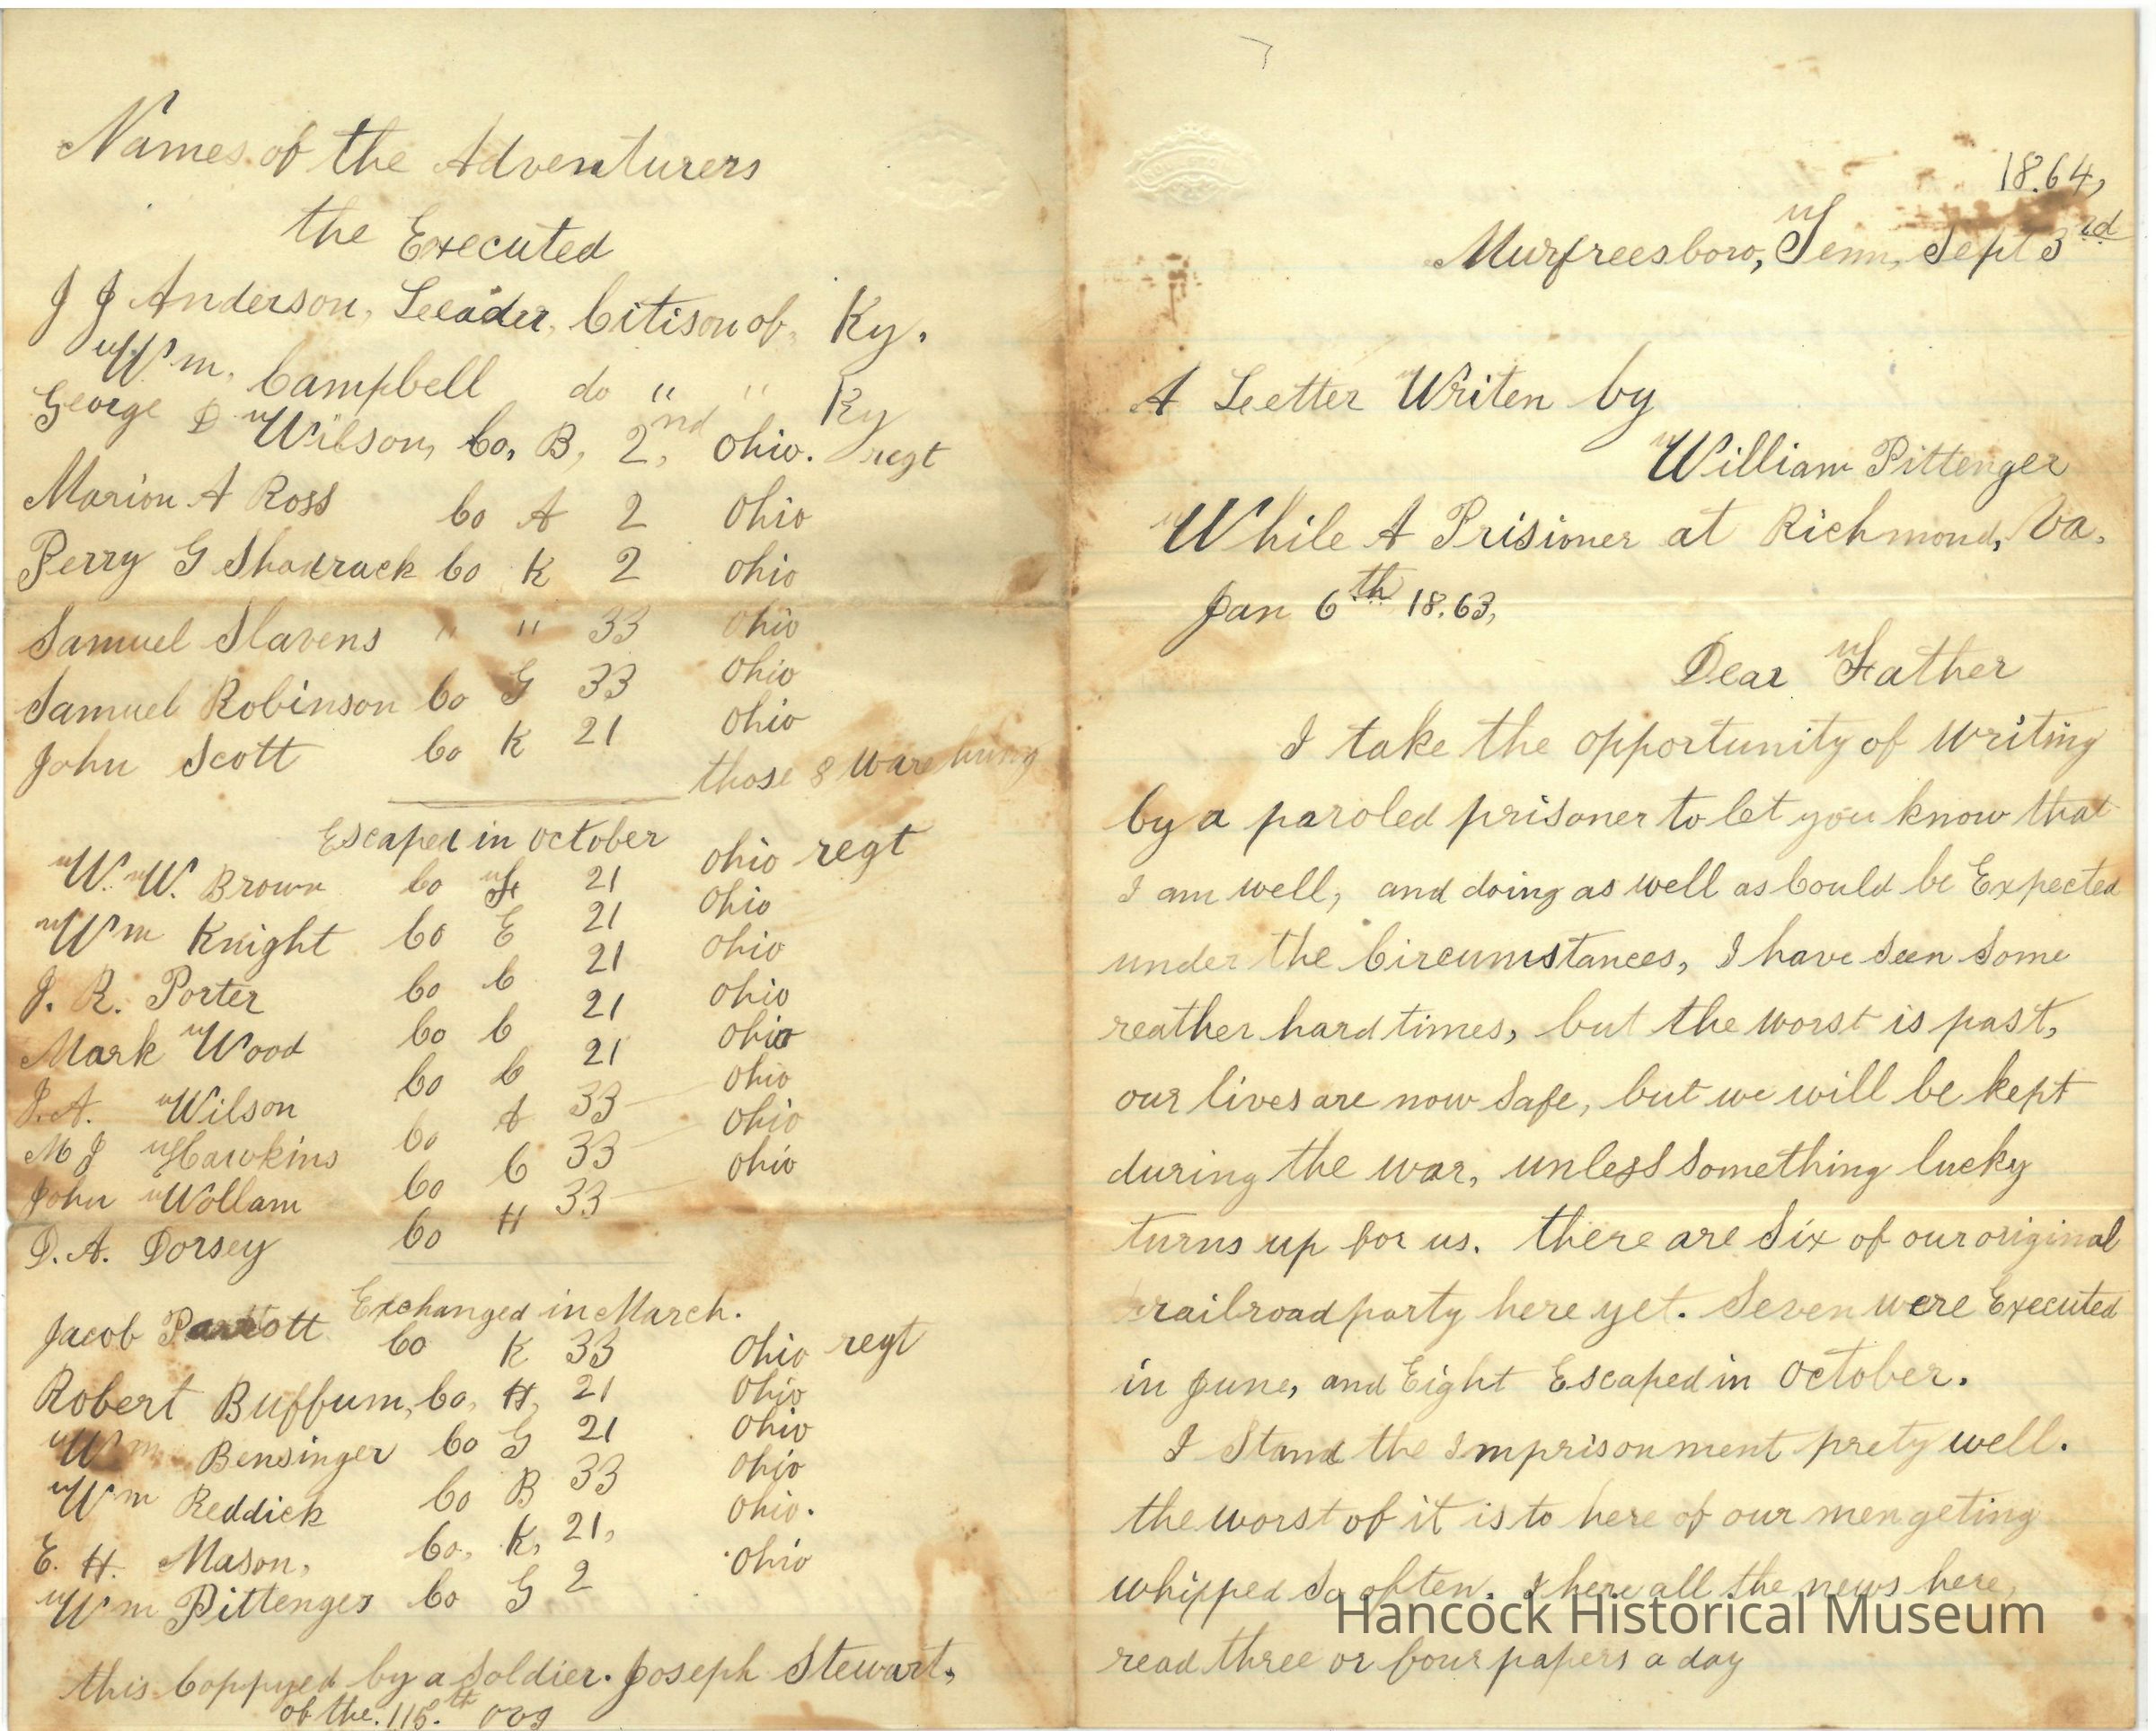 Names of the Adventurers
the Executed
J J Anderson, Leeader, Citison of, Ky.
Wm. Campbell do " " Ky
George D Wilson, Co, B, 2,nd Ohio. regt
Marion A Ross Co A 2 Ohio
Perry G Shadrack Co K 2 Ohio
Samuel Slavens " " 33 Ohio
Samuel Robinson Co G 33 Ohio
John Scott Co K 21 Ohio
those 8 ware hung
Escaped in October
W. W. Brown Co F 21 Ohio regt
Wm Knight Co E 21 Ohio
J. R. Porter Co C 21 Ohio
Mark Wood Co C 21 Ohio
J. A. Wilson Co C 21 Ohio
M J Hawkins Co A 33 Ohio
John Wollam Co C 33 Ohio
D. A. Dorsey Co H 33 Ohio
Exchanged in March.
Jacob Parrott Co K 33 Ohio regt
Robert Buffum, Co, H, 21 Ohio
Wm Bensinger Co G 21 Ohio
Wm Reddick Co B 33 Ohio
E. H. Mason, Co, K, 21, Ohio.
Wm Pittenger Co G 2 Ohio
this Coppyed by a Soldier. Joseph Stewart,
of the. 115.th

18.64,
Murfreesboro, Tenn, Sept 3rd
A Leetter Writen by
William Pittenger
While A Prisioner at Richmond, Va,
Jan 6th 18.63,
Dear Father
I take the opportunity of writing
by a paroled prisoner to let you know that
I am well, and doing as well as Could be Expected
under the Circumstances, I have seen Some
reather hard times, but the worst is past,
our lives are now Safe, but we will be kept
during the war, unless Something lucky
turns up for us. there are Six of our original
railroad party here yet. Seven were Executed
in June, and Eight Escaped in October.
I Stand the Imprisonment prety well.
the worst of it is to here of our men geting
whipped So often. I here all the news here,
Hancock Historical Museum
read three or four papers a day